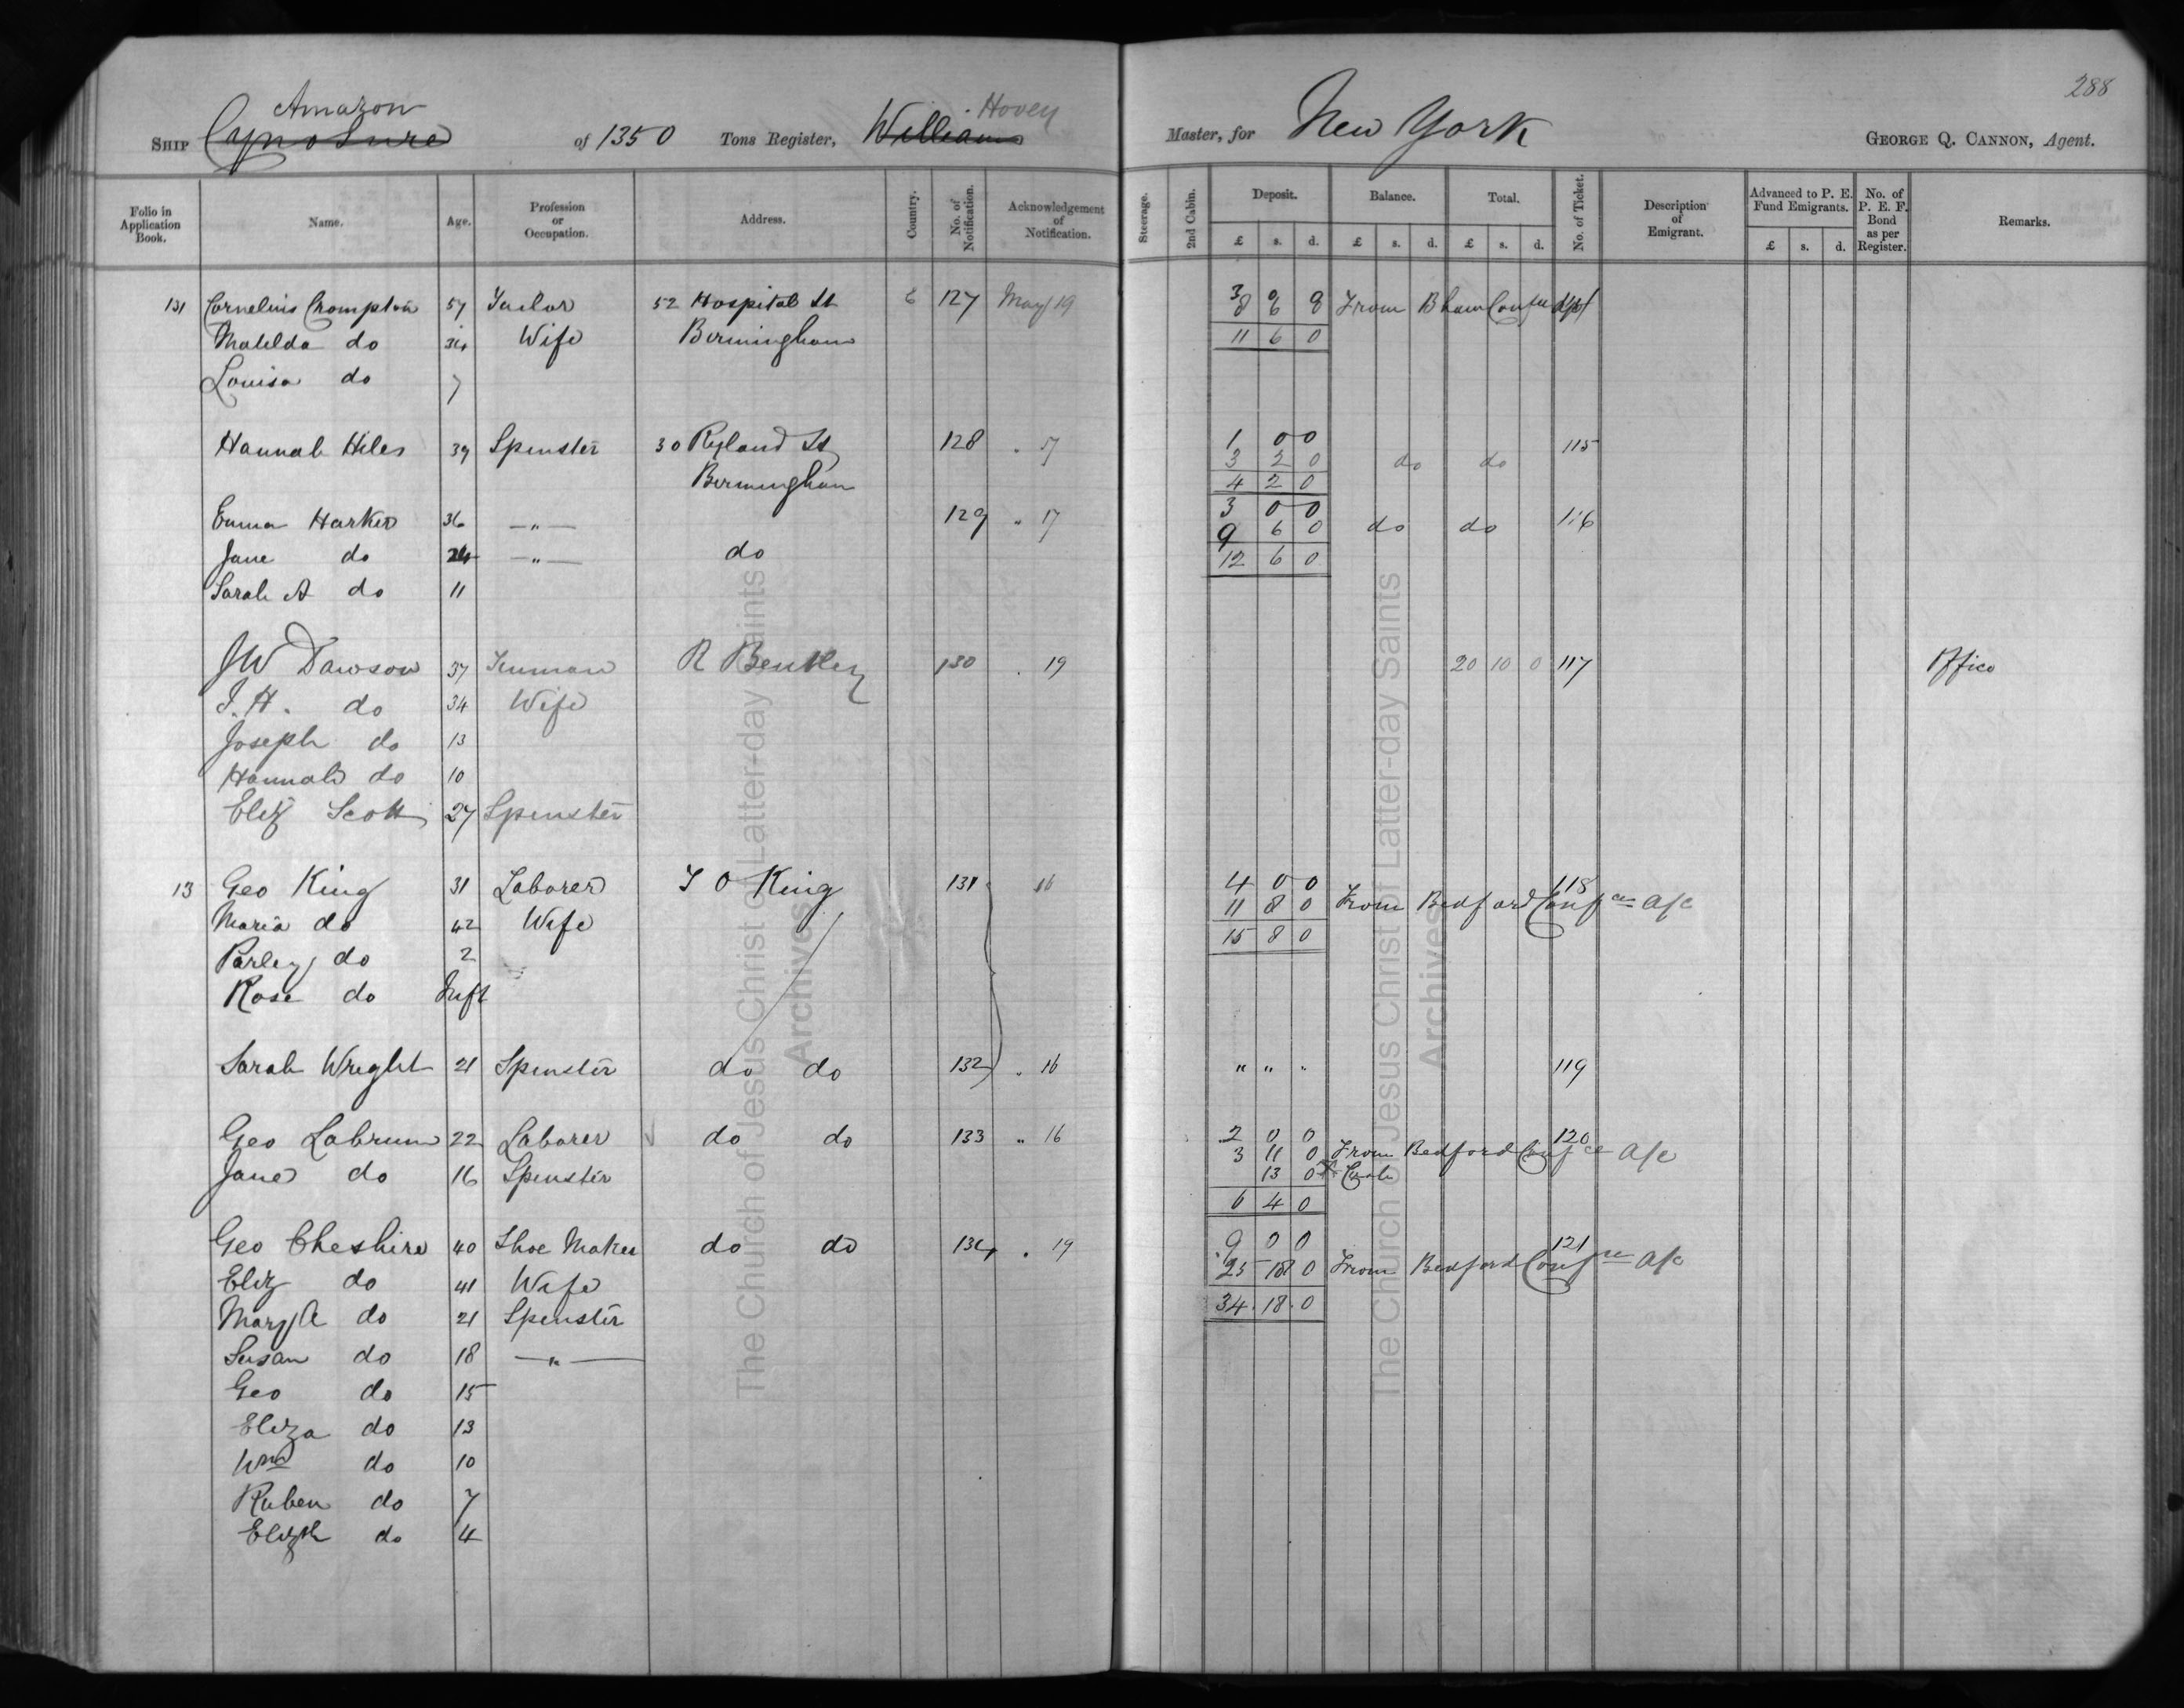 288
Amazon Hovey
SHIP Cynosure of 1350 Tons Register, William Master, for New York GEORGE Q. CANNON, Agent.
Folio in Application Book. Name. Age. Profession or Occupation. Address. Country. No. of Notification. Acknowledgement of Notification. Steerage. 2nd Cabin. Deposit. Balance. Total. No. of Ticket. Description of Emigrant. Advanced to P. E. Fund Emigrants. No. of P. E. F. Bond as per Register. Remarks.
£ s. d. £ s. d. £ s. d. £ s. d.
131 Cornelius Crompton 57 Tailor 52 Hospital St E 127 May 19 3 0 0
8 6 0 From Bham
Matilda do 34 Wife Birmingham 11 6 0
Louisa do 7
Hannah Hiles 39 Spinster 30 Ryland St 128 " 17 1 0 0 115
3 2 0 do do
Birmingham 4 2 0
Emma Harker 36 " 129 " 17 3 0 0 116
9 6 0 do do
Jane do 24 " do 12 6 0
Sarah A do 11
JW Dawson 37 R Bentley 130 . 19 20 10 0 117 Office
I. H. do 34 Wife
Joseph do 13
Hannah do 10
Eliz Scott 27 Spinster
13 Geo King 31 Laborer T O King 131 16 4 0 0 118
11 8 0 From Bedford Confce a/c
Maria do 42 Wife 15 8 0
Parley do 2
Rose do Inft
Sarah Wright 21 Spinster do do 132 " 16 " " " 119
Geo Labrum 22 Laborer do do 133 " 16 2 0 0 120
3 11 0 From Bedford Confce a/c
Jane do 16 Spinster 13 0 Cash
6 4 0
Geo Cheshire 40 Shoe Maker do do 134 . 19 9 0 0 121
25 18 0 From Bedford Confce a/c
Eliz do 41 Wife
Mary A do 21 Spinster 34 . 18 . 0
Susan do 18 "
Geo do 15
Eliza do 13
Wm do 10
Ruben do 7
Elizth do 4
The Church of Jesus Christ of Latter-day Saints
Archives
The Church of Jesus Christ of Latter-day Saints
Archives